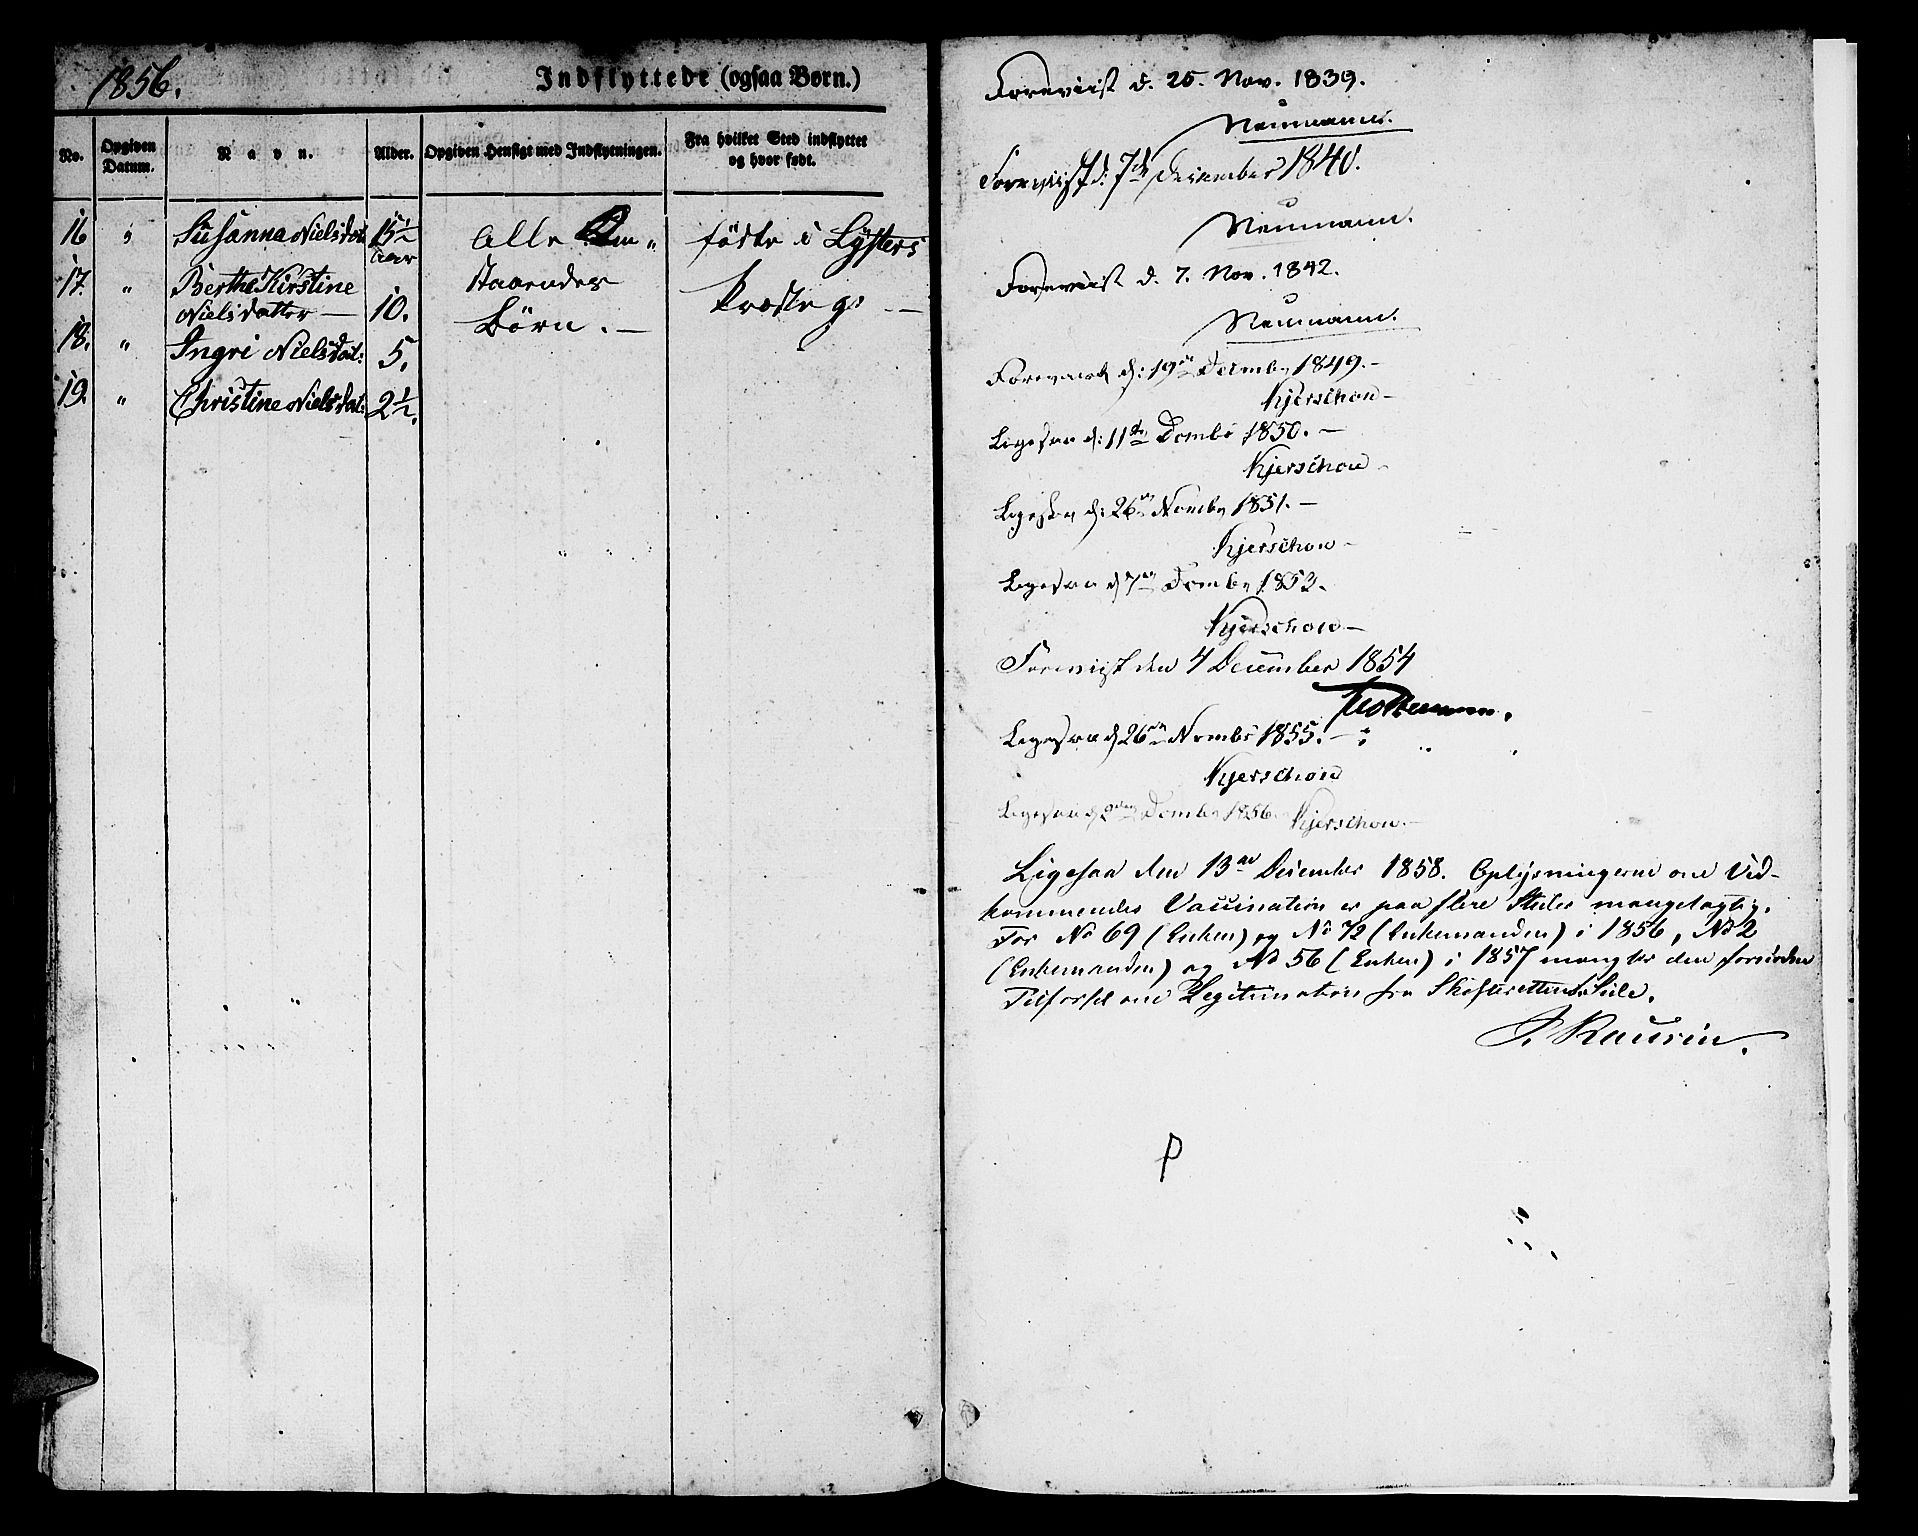 1856.
Indflyttede (ogsaa Børn.)
No.
Opgiven Datum.
Navn.
Alder.
Opgiven Hensigt med Indflytningen.
Fra hvilket Sted indflyttet og hvor født.
16 " Susanna Nielsdat 15½ aar
17. " Berthe Kirstine
Nielsdatter — 10.
18. " Ingri Nielsdat: 5.
19. " Christine Nielsdat: 2½.
Alle
staaendes
Børn. —
fødte i Lysters
Præsteg: —
Foreviist d. 25. Nov. 1839.
Neumann.
Foreviist d. 7de December 1840.
Neumann.
Foreviist d. 7. Nov. 1842.
Neumann.
Foreviist d: 19de Decembr 1849. —
Kjerschow —
Ligesaa d: 11te Decmbr 1850. —
Kjerschow —
Ligesaa d: 26de Novmbr 1851. —
Kjerschow —
Ligesaa d 7de Decmbr 1853.
Kjerschow —
Foreviist den 4 December 1854
Ligesaa d 26de Novmbr 1855. —
Kjerschow
Ligesaa d 2den Decmbr 1856. Kjerschow. —
Ligesaa den 13de December 1858. Oplysningerne om Ved-
kommendes Vaccination er paa flere Steder mangelagtig.
For No 69 (Enken) og No 72 (Enkemanden) i 1856, No 2
(Enkemanden) og No 56 (Enken) i 1857 mangler den fornødne
Tilførsel om Legitimation fra Skifterettens Side.
J. Kaurin.
P